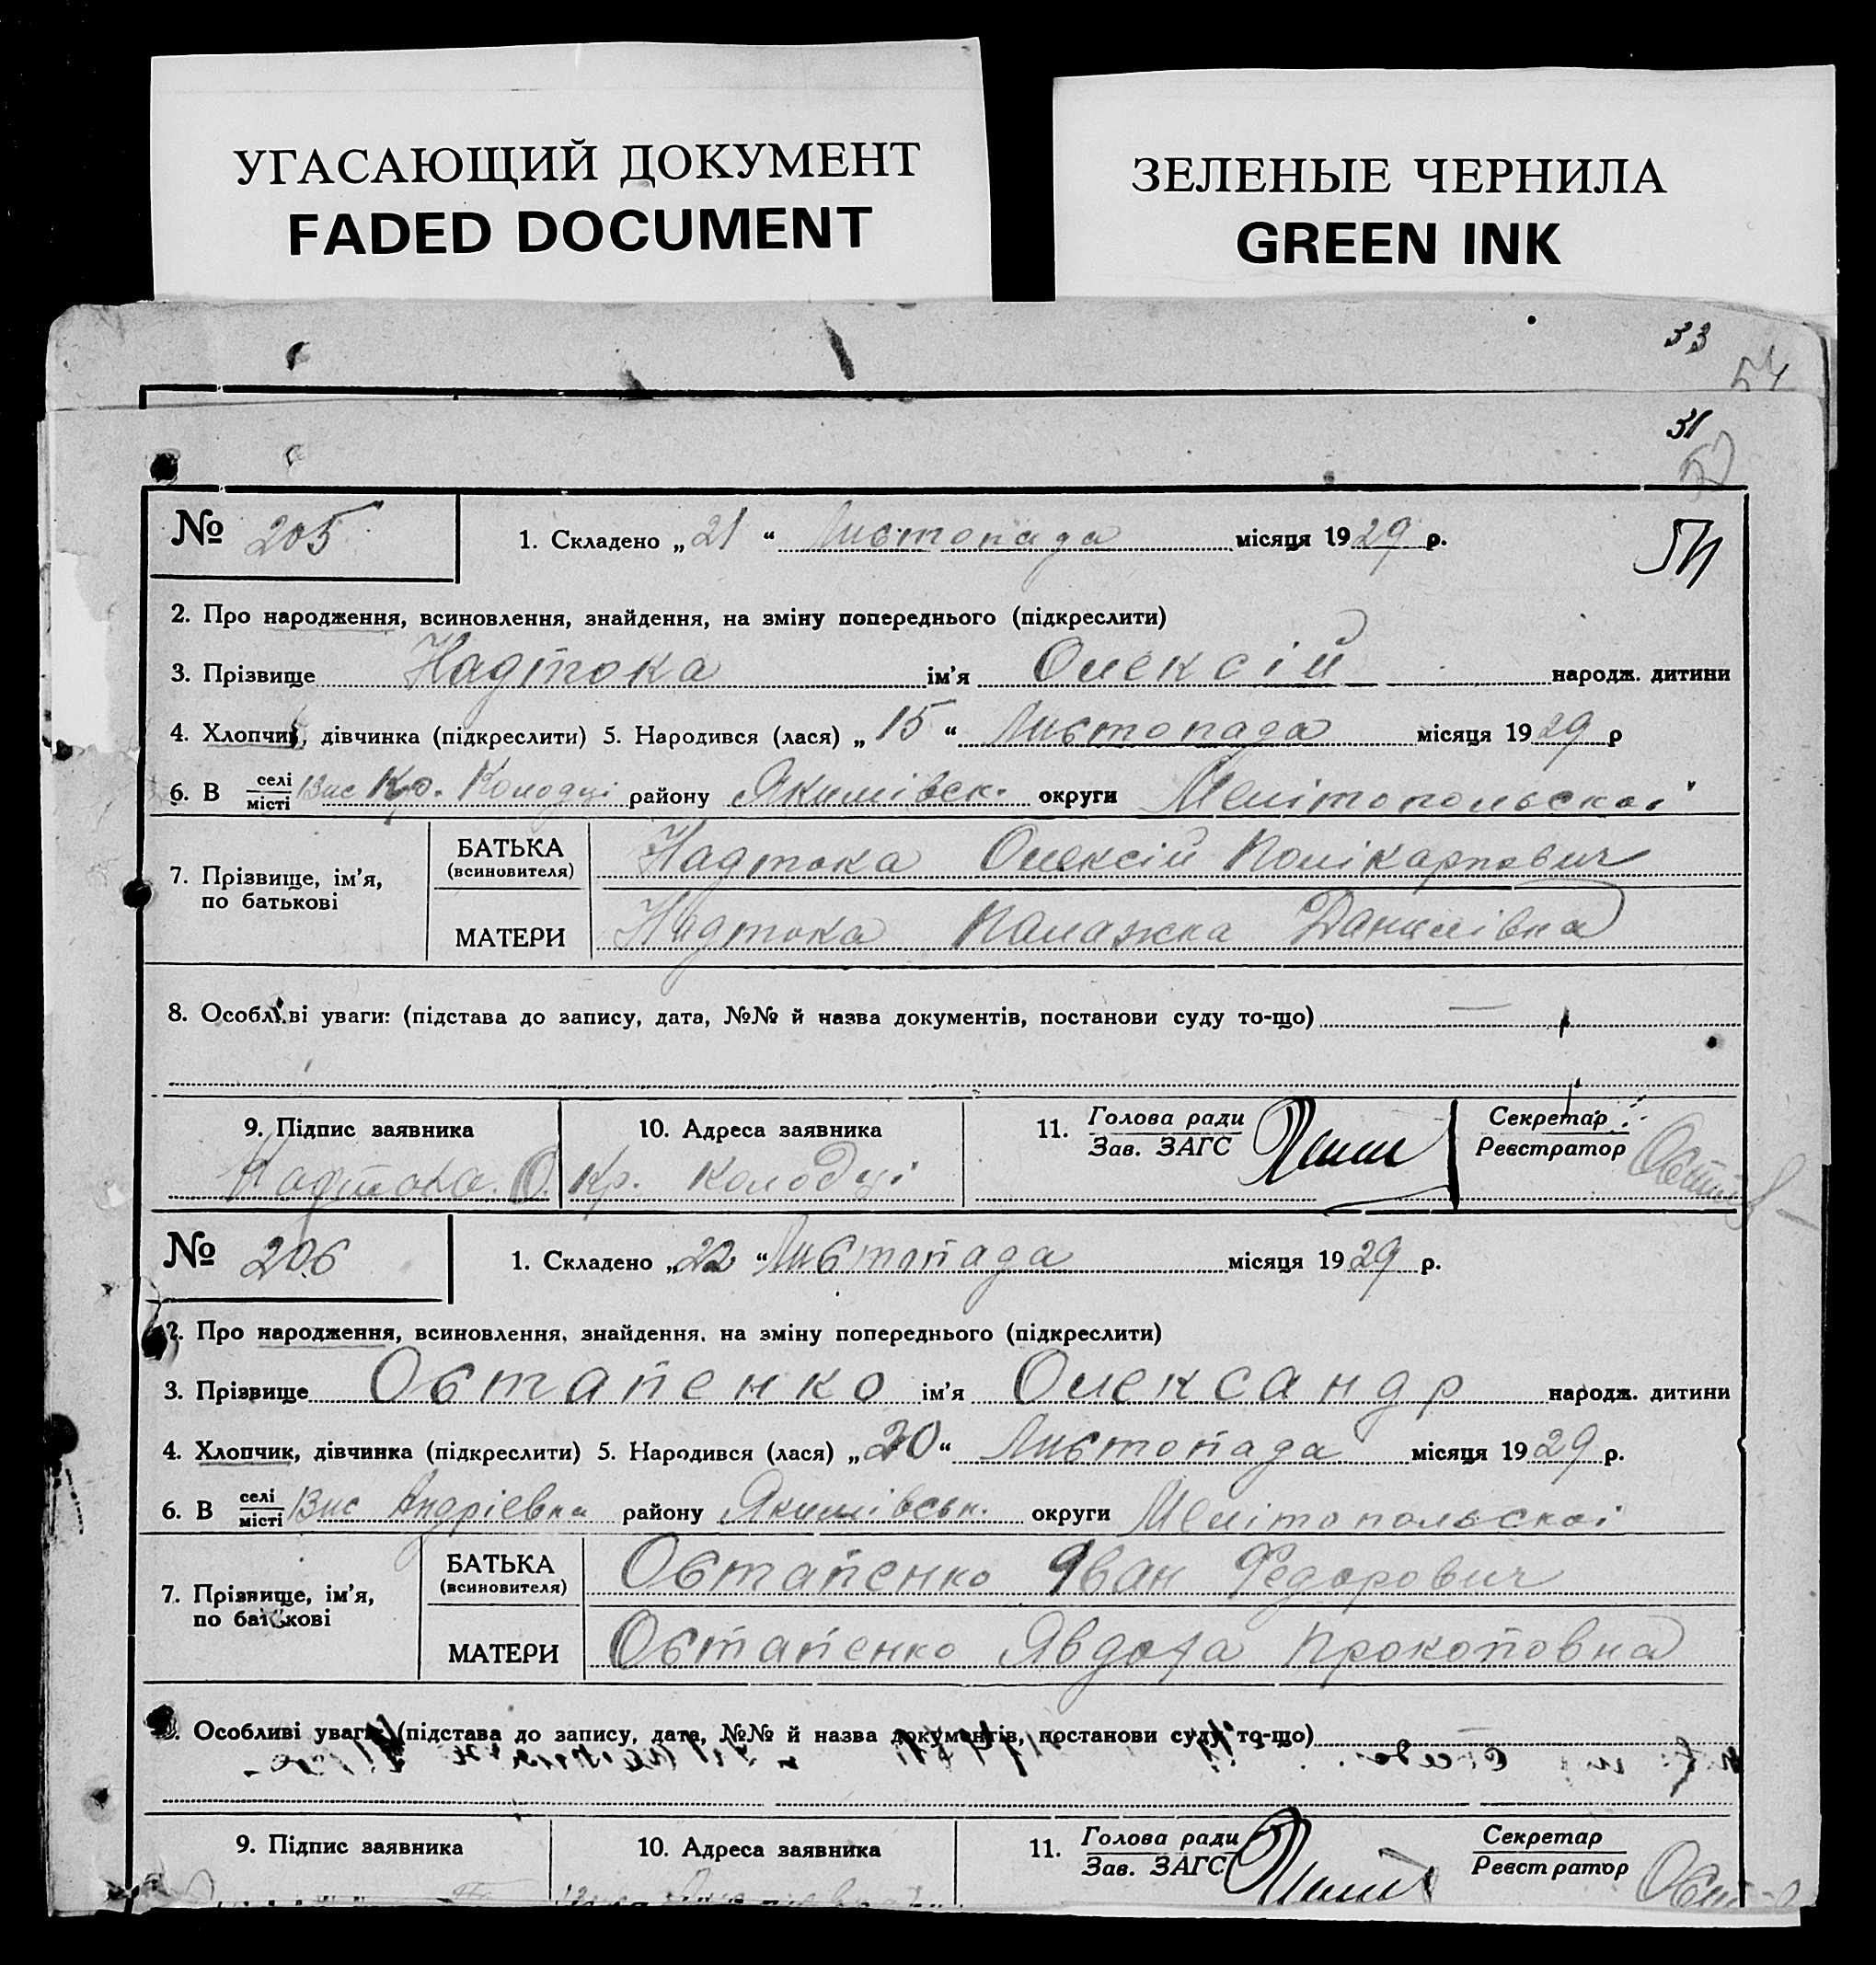 УГАСАЮЩИЙ ДОКУМЕНТ
FADED DOCUMENT
ЗЕЛЕНЫЕ ЧЕРНИЛА
GREEN INK
33
54
31
№ 205
1. Складено „21“ Листопада місяця 1929 р.
2. Про народження, всиновлення, знайдення, на зміну попереднього (підкреслити)
3. Прізвище Надтока ім'я Олексій народж. дитини
4. Хлопчик, дівчинка (підкреслити) 5. Народився (лася) „15“ Листопада місяця 1929 р
6. В селі місті Вис Кр. Колодці району Якимівськ. округи Мелітопольскої
7. Прізвище, ім'я, по батькові
БАТЬКА (всиновителя) Надтока Олексій Полікарпович
МАТЕРИ Надтока Палажка Данилівна
8. Особливі уваги: (підстава до запису, дата, №№ й назва документів, постанови суду то-що)
9. Підпис заявника
10. Адреса заявника
11. Голова ради
Зав. ЗАГС
Секретар
Реєстратор
Надтока. О. Кр. Колодці
№ 206
1. Складено „22“ Листопада місяця 1929 р.
2. Про народження, всиновлення, знайдення, на зміну попереднього (підкреслити)
3. Прізвище Остапенко ім'я Олександр народж. дитини
4. Хлопчик, дівчинка (підкреслити) 5. Народився (лася) „20“ Листопада місяця 1929 р.
6. В селі місті Вис Андрієвка району Якимівськ. округи Мелітопольскої
7. Прізвище, ім'я, по батькові
БАТЬКА (всиновителя) Остапенко Іван Федорович
МАТЕРИ Остапенко Явдоха Прокоповна
8. Особливі уваги: (підстава до запису, дата, №№ й назва документів, постанови суду то-що)
9. Підпис заявника
10. Адреса заявника
11. Голова ради
Зав. ЗАГС
Секретар
Реєстратор